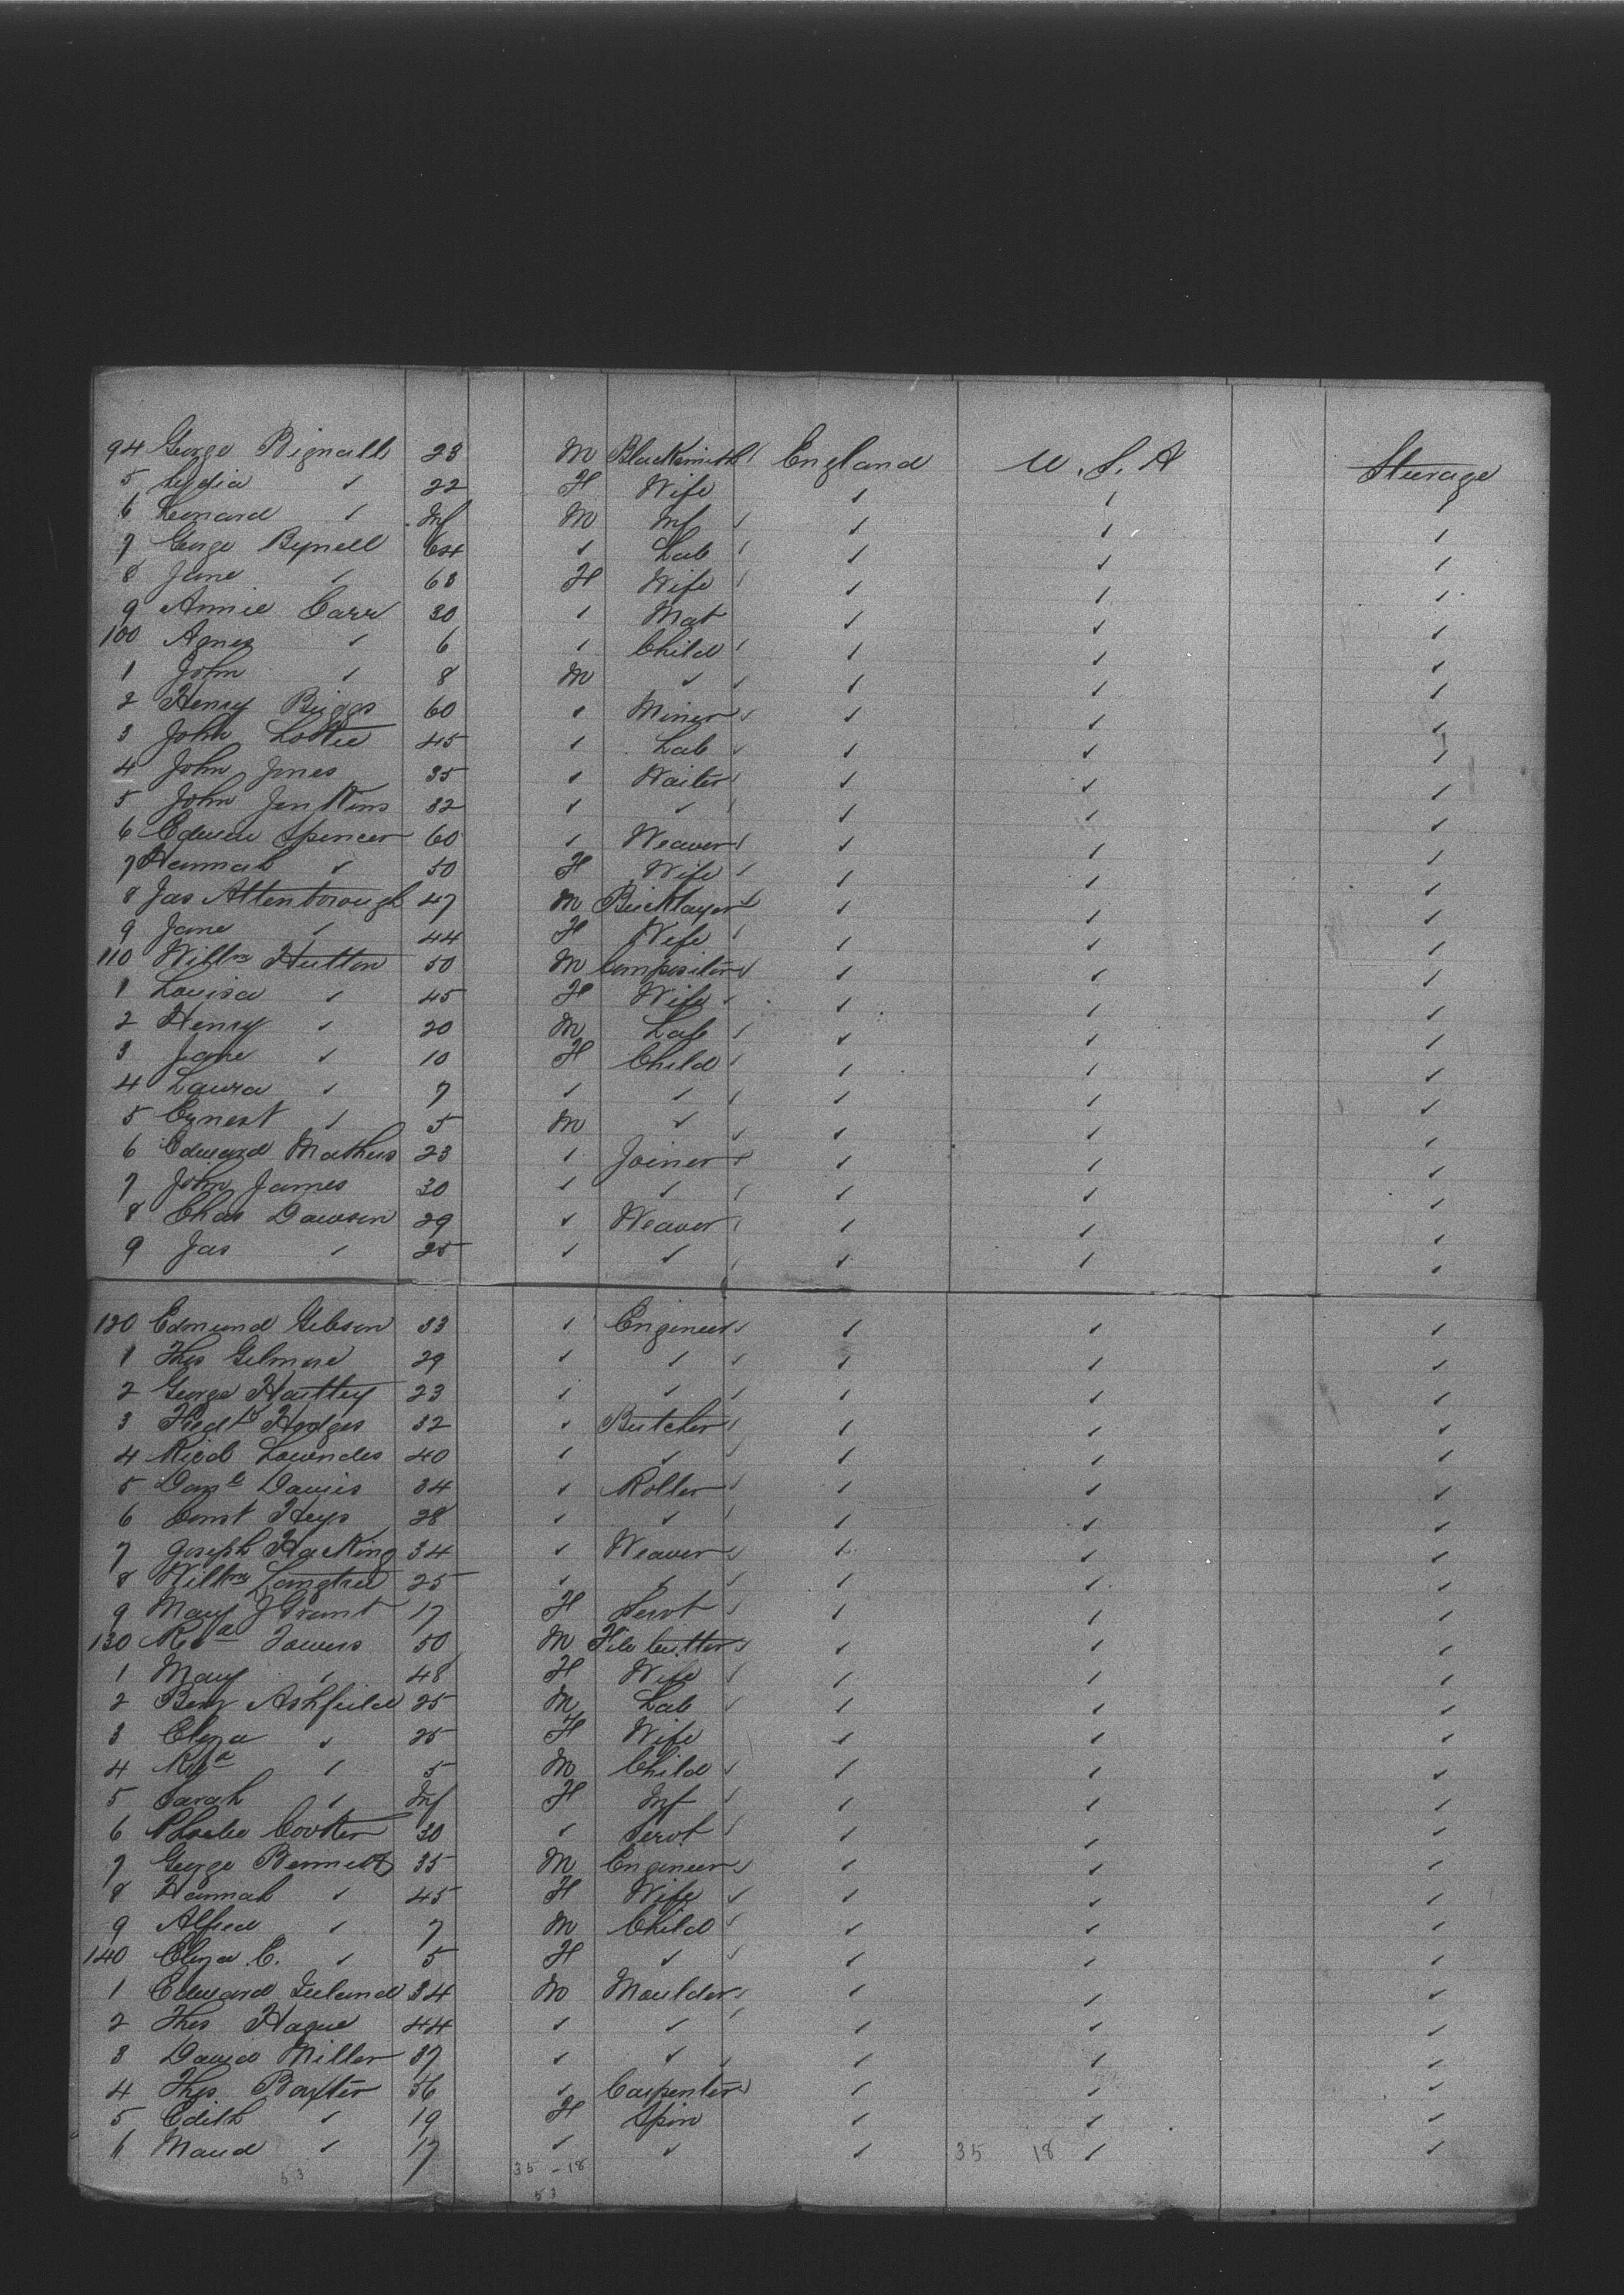 94 George Bignall 23 M Blacksmith England U.S.A Steerage
5 Lydia ✓ 22 F Wife ✓ ✓ ✓
6 Leonard ✓ Inf M Inf ✓ ✓ ✓
7 George Bynell 64 ✓ Lab ✓ ✓ ✓
8 Jane ✓ 63 F Wife ✓ ✓ ✓
9 Annie Carr 30 ✓ Mat ✓ ✓ ✓
100 Agnes ✓ 6 ✓ Child ✓ ✓ ✓
1 John ✓ 8 M ✓ ✓ ✓ ✓
2 Henry Biggs 60 ✓ Miner ✓ ✓ ✓
3 John Lottie 45 ✓ Lab ✓ ✓ ✓
4 John Jones 35 ✓ Waiter ✓ ✓ ✓
5 John Jenkins 32 ✓ ✓ ✓ ✓ ✓
6 Edwin Spencer 60 ✓ Weaver ✓ ✓ ✓
7 Hannah ✓ 50 F Wife ✓ ✓ ✓
8 Jas Attenborough 47 M Bricklayer ✓ ✓ ✓
9 Jane ✓ 44 F Wife ✓ ✓ ✓
110 Willm Hutton 50 M Compositor ✓ ✓ ✓
1 Louisa ✓ 45 F Wife ✓ ✓ ✓
2 Henry ✓ 20 M Lab ✓ ✓ ✓
3 Jane ✓ 10 F Child ✓ ✓ ✓
4 Laura ✓ 7 ✓ ✓ ✓ ✓ ✓
5 Ernest ✓ 5 M ✓ ✓ ✓ ✓
6 Edward Mathews 23 ✓ Joiner ✓ ✓ ✓
7 John James 30 ✓ ✓ ✓ ✓ ✓
8 Chas Dawson 29 ✓ Weaver ✓ ✓ ✓
9 Jas ✓ 25 ✓ ✓ ✓ ✓ ✓
120 Edmund Gibson 33 ✓ Engineer ✓ ✓ ✓
1 Thos Gilmore 29 ✓ ✓ ✓ ✓ ✓
2 George Hartley 23 ✓ ✓ ✓ ✓ ✓
3 Fredk Hodges 32 ✓ Butcher ✓ ✓ ✓
4 Ricd Lowndes 40 ✓ ✓ ✓ ✓ ✓
5 Danl Davies 34 ✓ Roller ✓ ✓ ✓
6 Heys 28 ✓ ✓ ✓ ✓ ✓
7 Joseph Hacking 34 ✓ Weaver ✓ ✓ ✓
8 Willm Langtree 25 ✓ ✓ ✓ ✓ ✓
9 Mary J Grant 17 F Servt ✓ ✓ ✓
130 Towers 50 M File Cutter ✓ ✓ ✓
1 Mary ✓ 48 F Wife ✓ ✓ ✓
2 Benj Ashfield 25 M Lab ✓ ✓ ✓
3 Eliza ✓ 25 F Wife ✓ ✓ ✓
4 ✓ 5 M Child ✓ ✓ ✓
5 Sarah ✓ Inf F Inf ✓ ✓ ✓
6 Phoebe 30 ✓ Servt ✓ ✓ ✓
7 George Bennett 35 M Engineer ✓ ✓ ✓
8 Hannah ✓ 45 F Wife ✓ ✓ ✓
9 Alfred ✓ 7 M Child ✓ ✓ ✓
140 Eliza C. ✓ 5 F ✓ ✓ ✓ ✓
1 Edward 34 M Moulder ✓ ✓ ✓
2 Thos Hague 44 ✓ ✓ ✓ ✓ ✓
3 David Miller 37 ✓ ✓ ✓ ✓ ✓
4 Thos Baxter 36 ✓ Carpenter ✓ ✓ ✓
5 Edith ✓ 19 F Spin ✓ ✓ ✓
6 Maud ✓ 17 ✓ ✓ ✓ 35 18 ✓ ✓
53 35 - 18
53